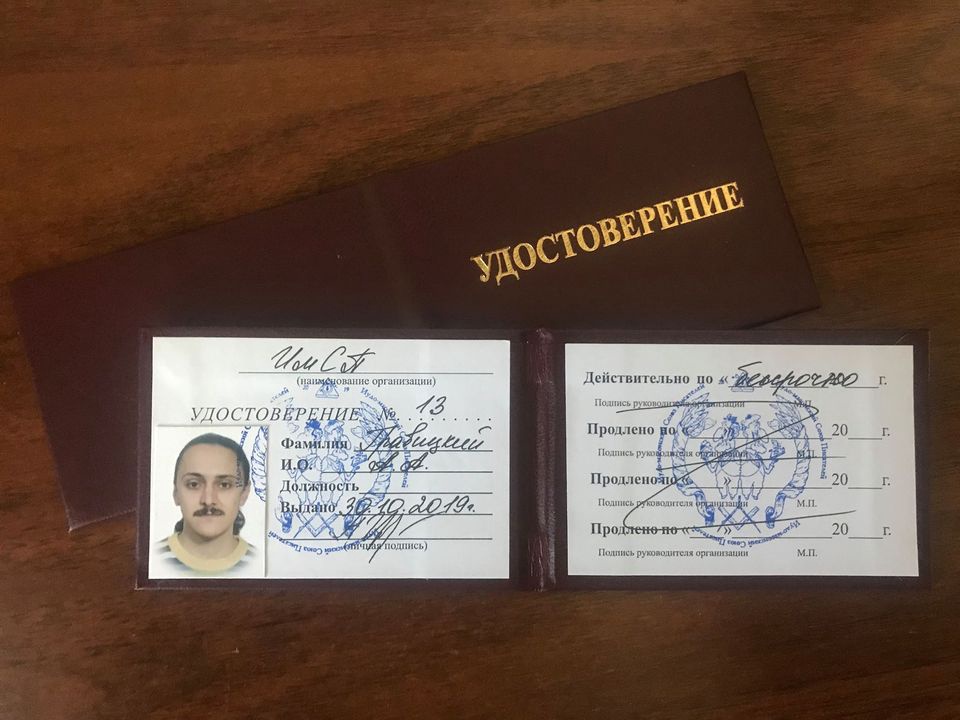 УДОСТОВЕРЕНИЕ
ИмСП
(наименование организации)
УДОСТОВЕРЕНИЕ № 13
Фамилия
И.О. А.А.
Должность
Выдано 30.10.2019г.
(личная подпись)
Действительно по « бессрочно г.
Подпись руководителя организации М.П.
Продлено по « » 20 г.
Подпись руководителя организации М.П.
Продлено по « » 20 г.
Подпись руководителя организации М.П.
Продлено по « » 20 г.
Подпись руководителя организации М.П.